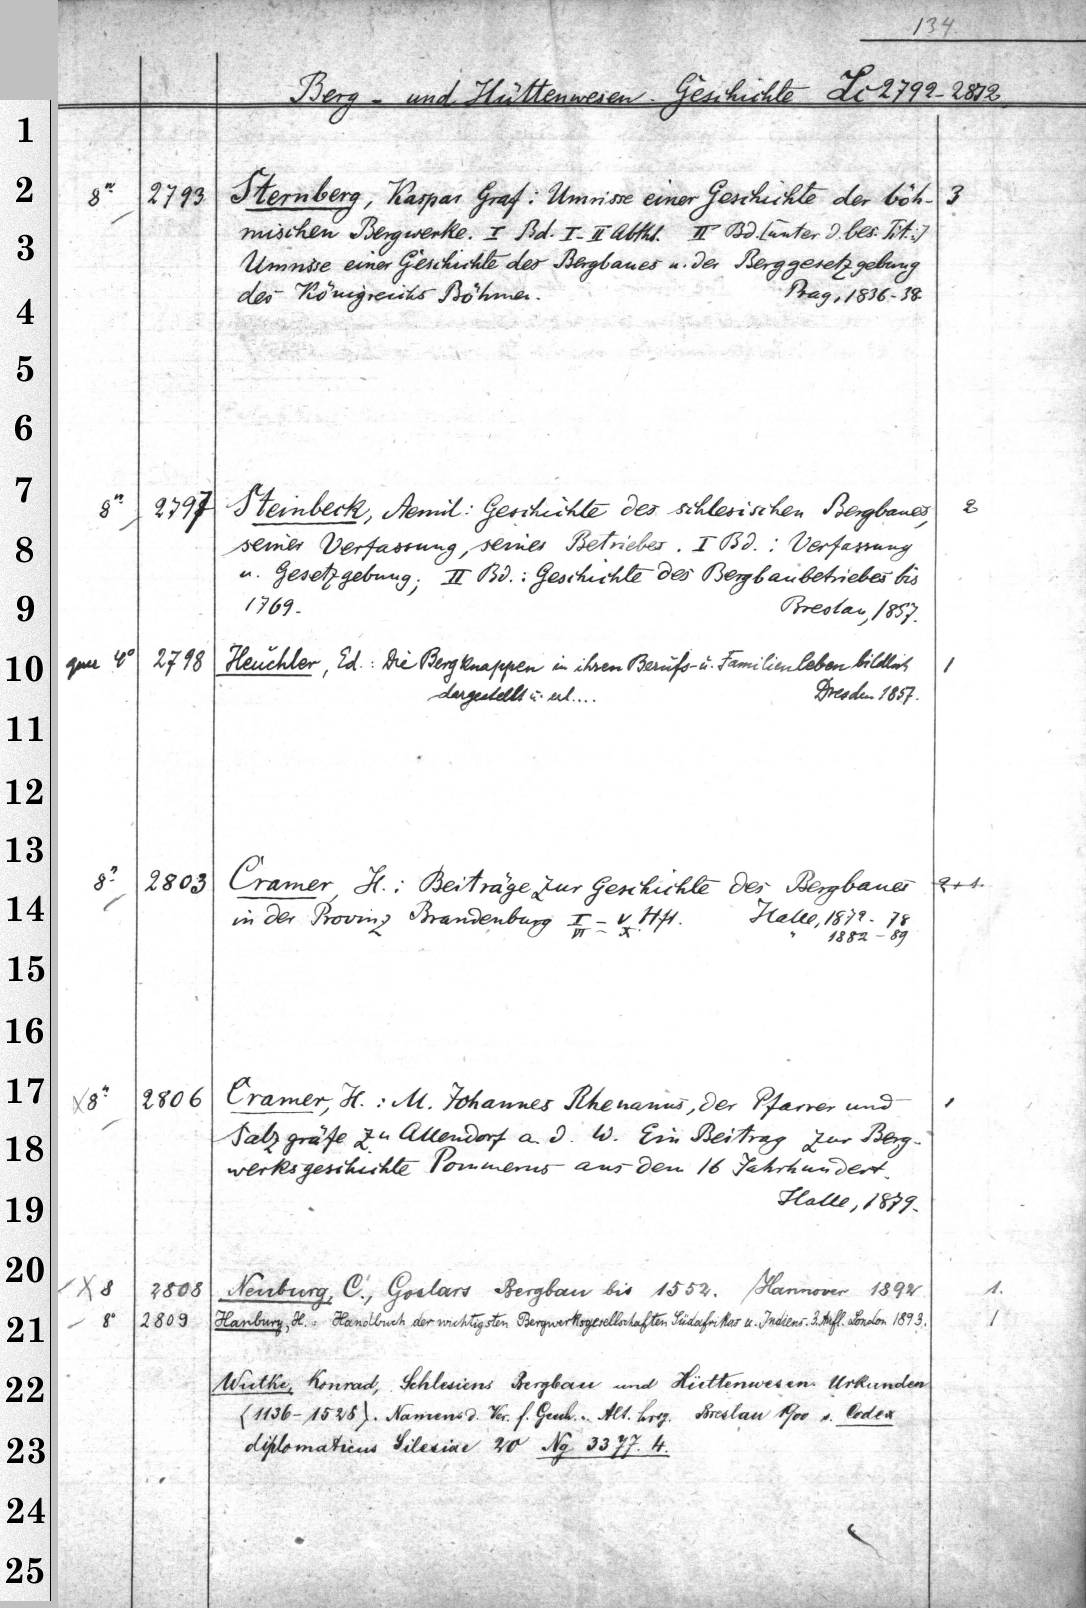 134.
Berg- und Hüttenwesen. Geschichte Lc 2792-2872.
1
2
3
4
5
6
7
8
9
10
11
12
13
14
15
16
17
18
19
20
21
22
23
24
25
8° 2793 Sternberg, Kaspar Graf: Umrisse einer Geschichte der böh- 3
mischen Bergwerke. I Bd. I-II Abthl. II Bd. [unter d. bes. Tit.:]
Umrisse einer Geschichte des Bergbaues u. der Berggesetzgebung
des Königreichs Böhmen. Prag, 1836-38.
8° 2797 Steinbeck, Aemil: Geschichte des schlesischen Bergbaues, 2
seiner Verfassung, seines Betriebes. I Bd.: Verfassung
u. Gesetzgebung; II Bd.: Geschichte des Bergbaubetriebes bis
1769. Breslau, 1857.
quer 4° 2798 Heuchler, Ed.: Die Bergknappen in ihren Berufs- u. Familienleben bildlich 1
dargestellt u. erl.... Dresden 1857.
8° 2803 Cramer, H.: Beiträge zur Geschichte des Bergbaues 2+1.
in der Provinz Brandenburg I-V Hft. Halle, 1872-78
VI-X. " 1882-89
X 8° 2806 Cramer, H.: M. Johannes Rhenanus, der Pfarrer und 1
Salzgräfe zu Allendorf a. d. W. Ein Beitrag zur Berg-
werksgeschichte Pommerns aus dem 16 Jahrhundert.
Halle, 1879.
X 8 2808 Neuburg, C., Goslars Bergbau bis 1552. Hannover 1892 1.
8° 2809 Hanbury, H.: Handbuch der wichtigsten Bergwerksgesellschaften Südafrikas u. Indiens. 3. Aufl. London 1893. 1
Wutke, Konrad, Schlesiens Bergbau und Hüttenwesen. Urkunden
(1136-1528). Namens d. Ver. f. Gesch. u. Alt. hrsg. Breslau 1900 s. Codex
diplomaticus Silesiae 20 Ng 3377. 4.